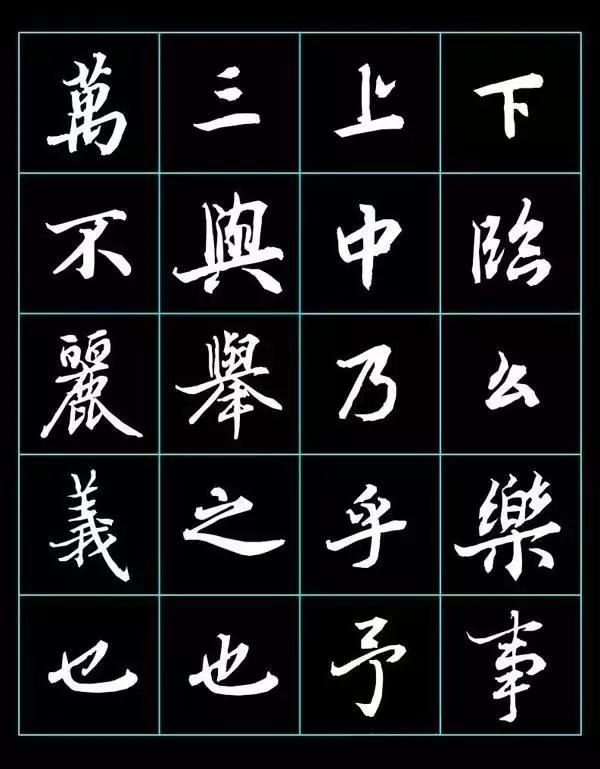 萬三上下
不與中臨
麗舉乃么
義之乎樂
乜也予事